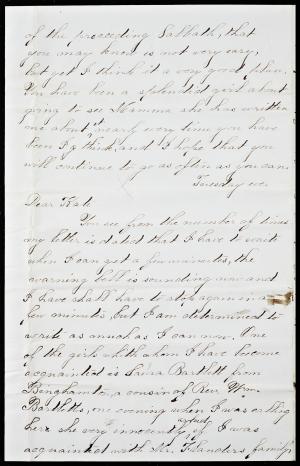 of the preceeding Sabbath, that
you may know is not very easy,
but yet I think it a very good plan.
You have been a splendid girl about
going to see Mamma she has written
me about it nearly every time you have
been I think, and I hope that you
will continue to go as often as you can.
Tuesday eve.
Dear Kate
You see from the number of times
my letter is dated that I have to write
when I can get a few minutes, the
warning bell is sounding now and
I have shall have to stop again in a
few minutes, but I am determined to
write as much as I can now. One
of the girls with whom I have become
acquainted is Bartlett from
Binghamton, a cousin of Rev. Wm
Bartletts, one evening when I was calling
here she very innocently asked if I was
acquainted with Mr. Flanders family